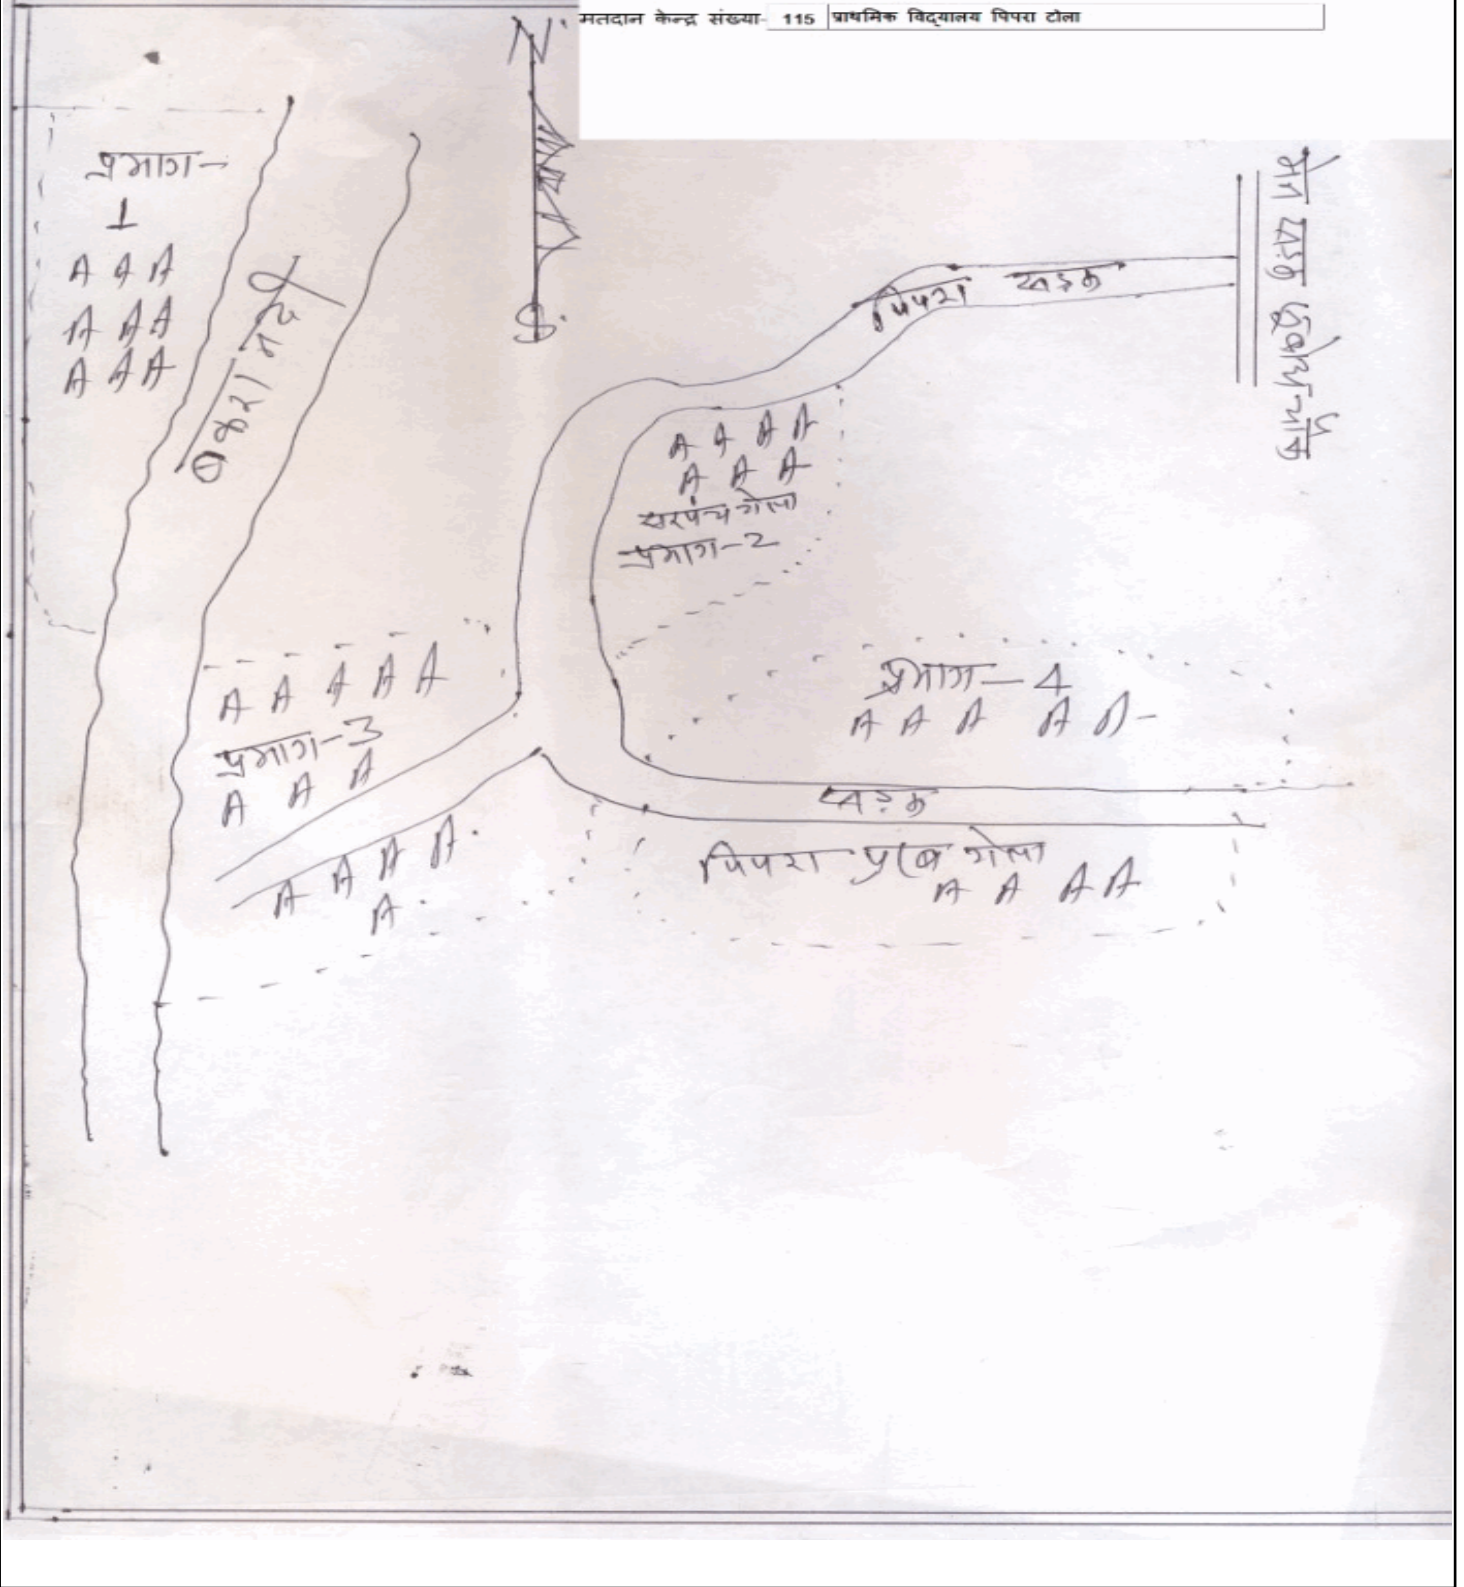 मतदान केन्द्र संख्या- 115 प्राथमिक विद्यालय पिपरा टोला
N
प्रभाग-
1
A A A
A A A
A A A
बकरा नदी
S.
पिपरा सड़क
मेन सड़क
A A A A
A A A
सरपंच टोला
प्रभाग-2
A A A A A
प्रभाग-3
A A A
प्रभाग-4
A A A A A
सड़क
A A A A
A
पिपरा पुरब टोला
A A A A